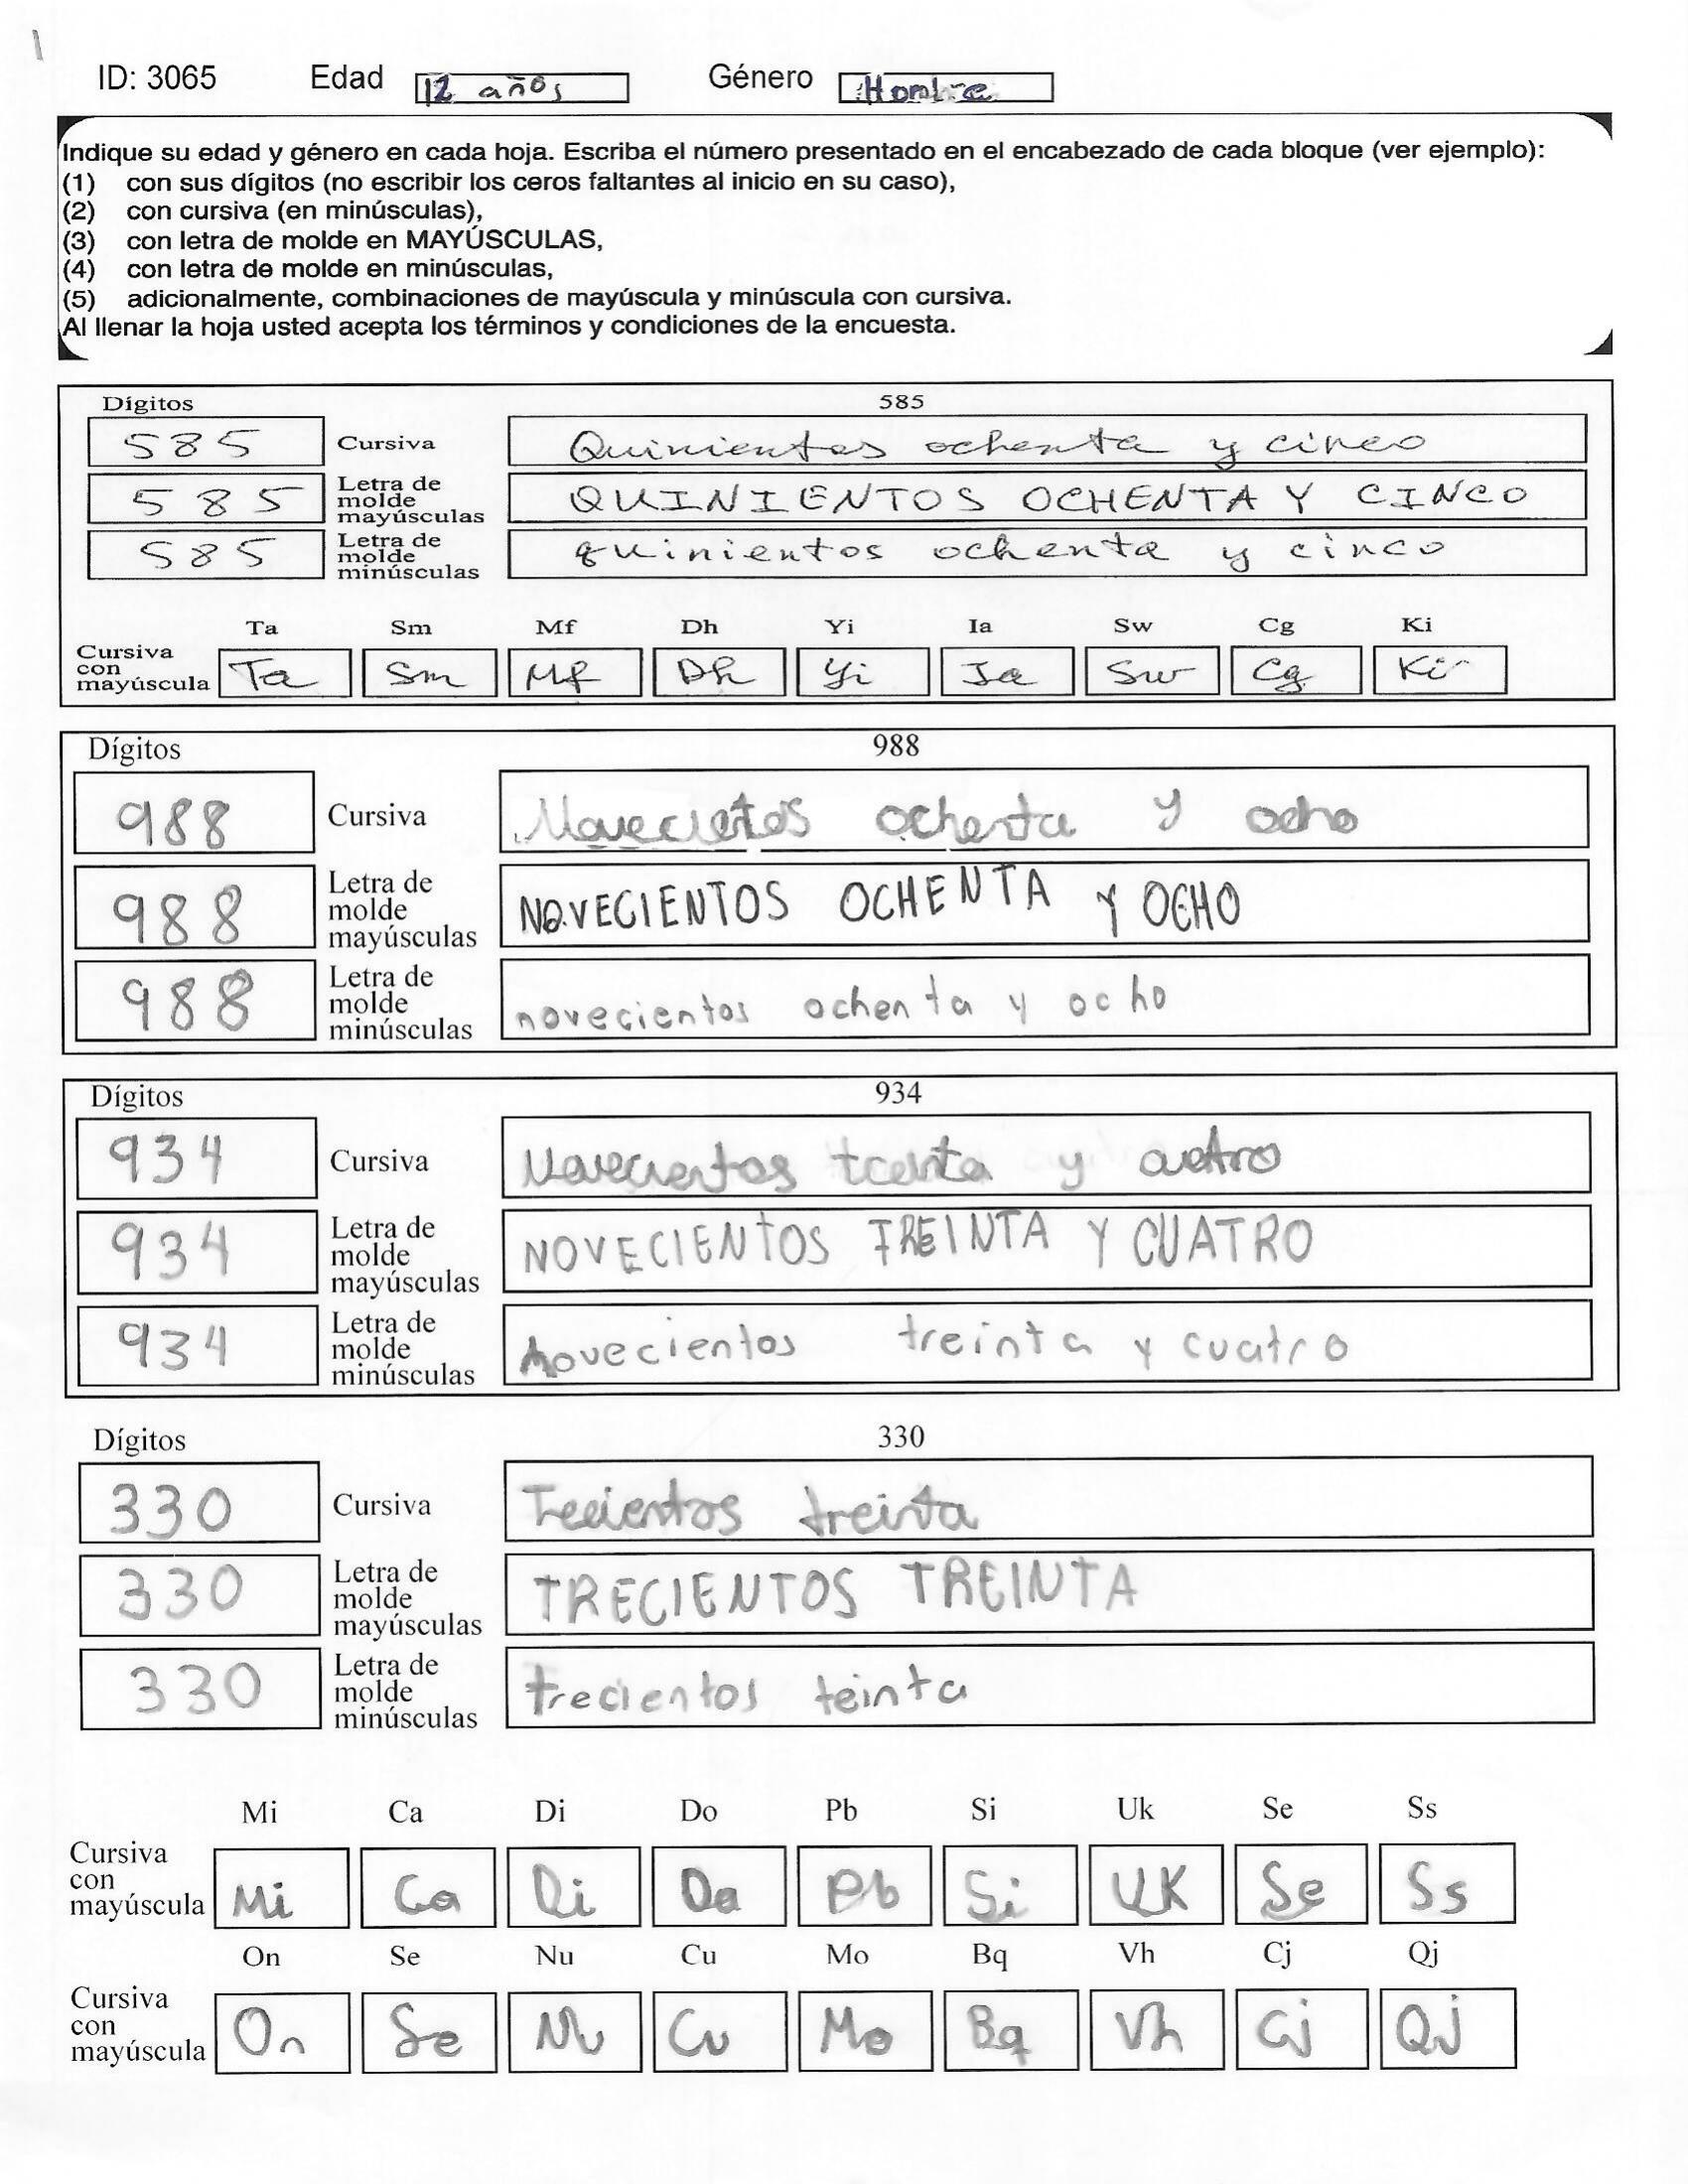 ID: 3065 Edad 12 años Género Hombre
Indique su edad y género en cada hoja. Escriba el número presentado en el encabezado de cada bloque (ver ejemplo):
(1) con sus dígitos (no escribir los ceros faltantes al inicio en su caso),
(2) con cursiva (en minúsculas),
(3) con letra de molde en MAYÚSCULAS,
(4) con letra de molde en minúsculas,
(5) adicionalmente, combinaciones de mayúscula y minúscula con cursiva.
Al llenar la hoja usted acepta los términos y condiciones de la encuesta.
Dígitos 585
585 Cursiva Quinientos ochenta y cinco
585 Letra de molde mayúsculas QUINIENTOS OCHENTA Y CINCO
585 Letra de molde minúsculas quinientos ochenta y cinco
Ta Sm Mf Dh Yi Ia Sw Cg Ki
Cursiva con mayúscula Ta Sm Mf Dh Yi Ia Sw Cg Ki
Dígitos 988
988 Cursiva Novecietos ochenta y ocho
988 Letra de molde mayúsculas NOVECIENTOS OCHENTA Y OCHO
988 Letra de molde minúsculas novecientos ochenta y ocho
Dígitos 934
934 Cursiva Novecientos treinta y
934 Letra de molde mayúsculas NOVECIENTOS TREINTA Y CUATRO
934 Letra de molde minúsculas novecientos treinta y cuatro
Dígitos 330
330 Cursiva Tecientos treinta
330 Letra de molde mayúsculas TRECIENTOS TREINTA
330 Letra de molde minúsculas trecientos teinta
Mi Ca Di Do Pb Si Uk Se Ss
Cursiva con mayúscula Mi Ca Di Da Pb Si UK Se Ss
On Se Nu Cu Mo Bq Vh Cj Qj
Cursiva con mayúscula On Se Nu Cu Mo Bq Vh Cj Qj